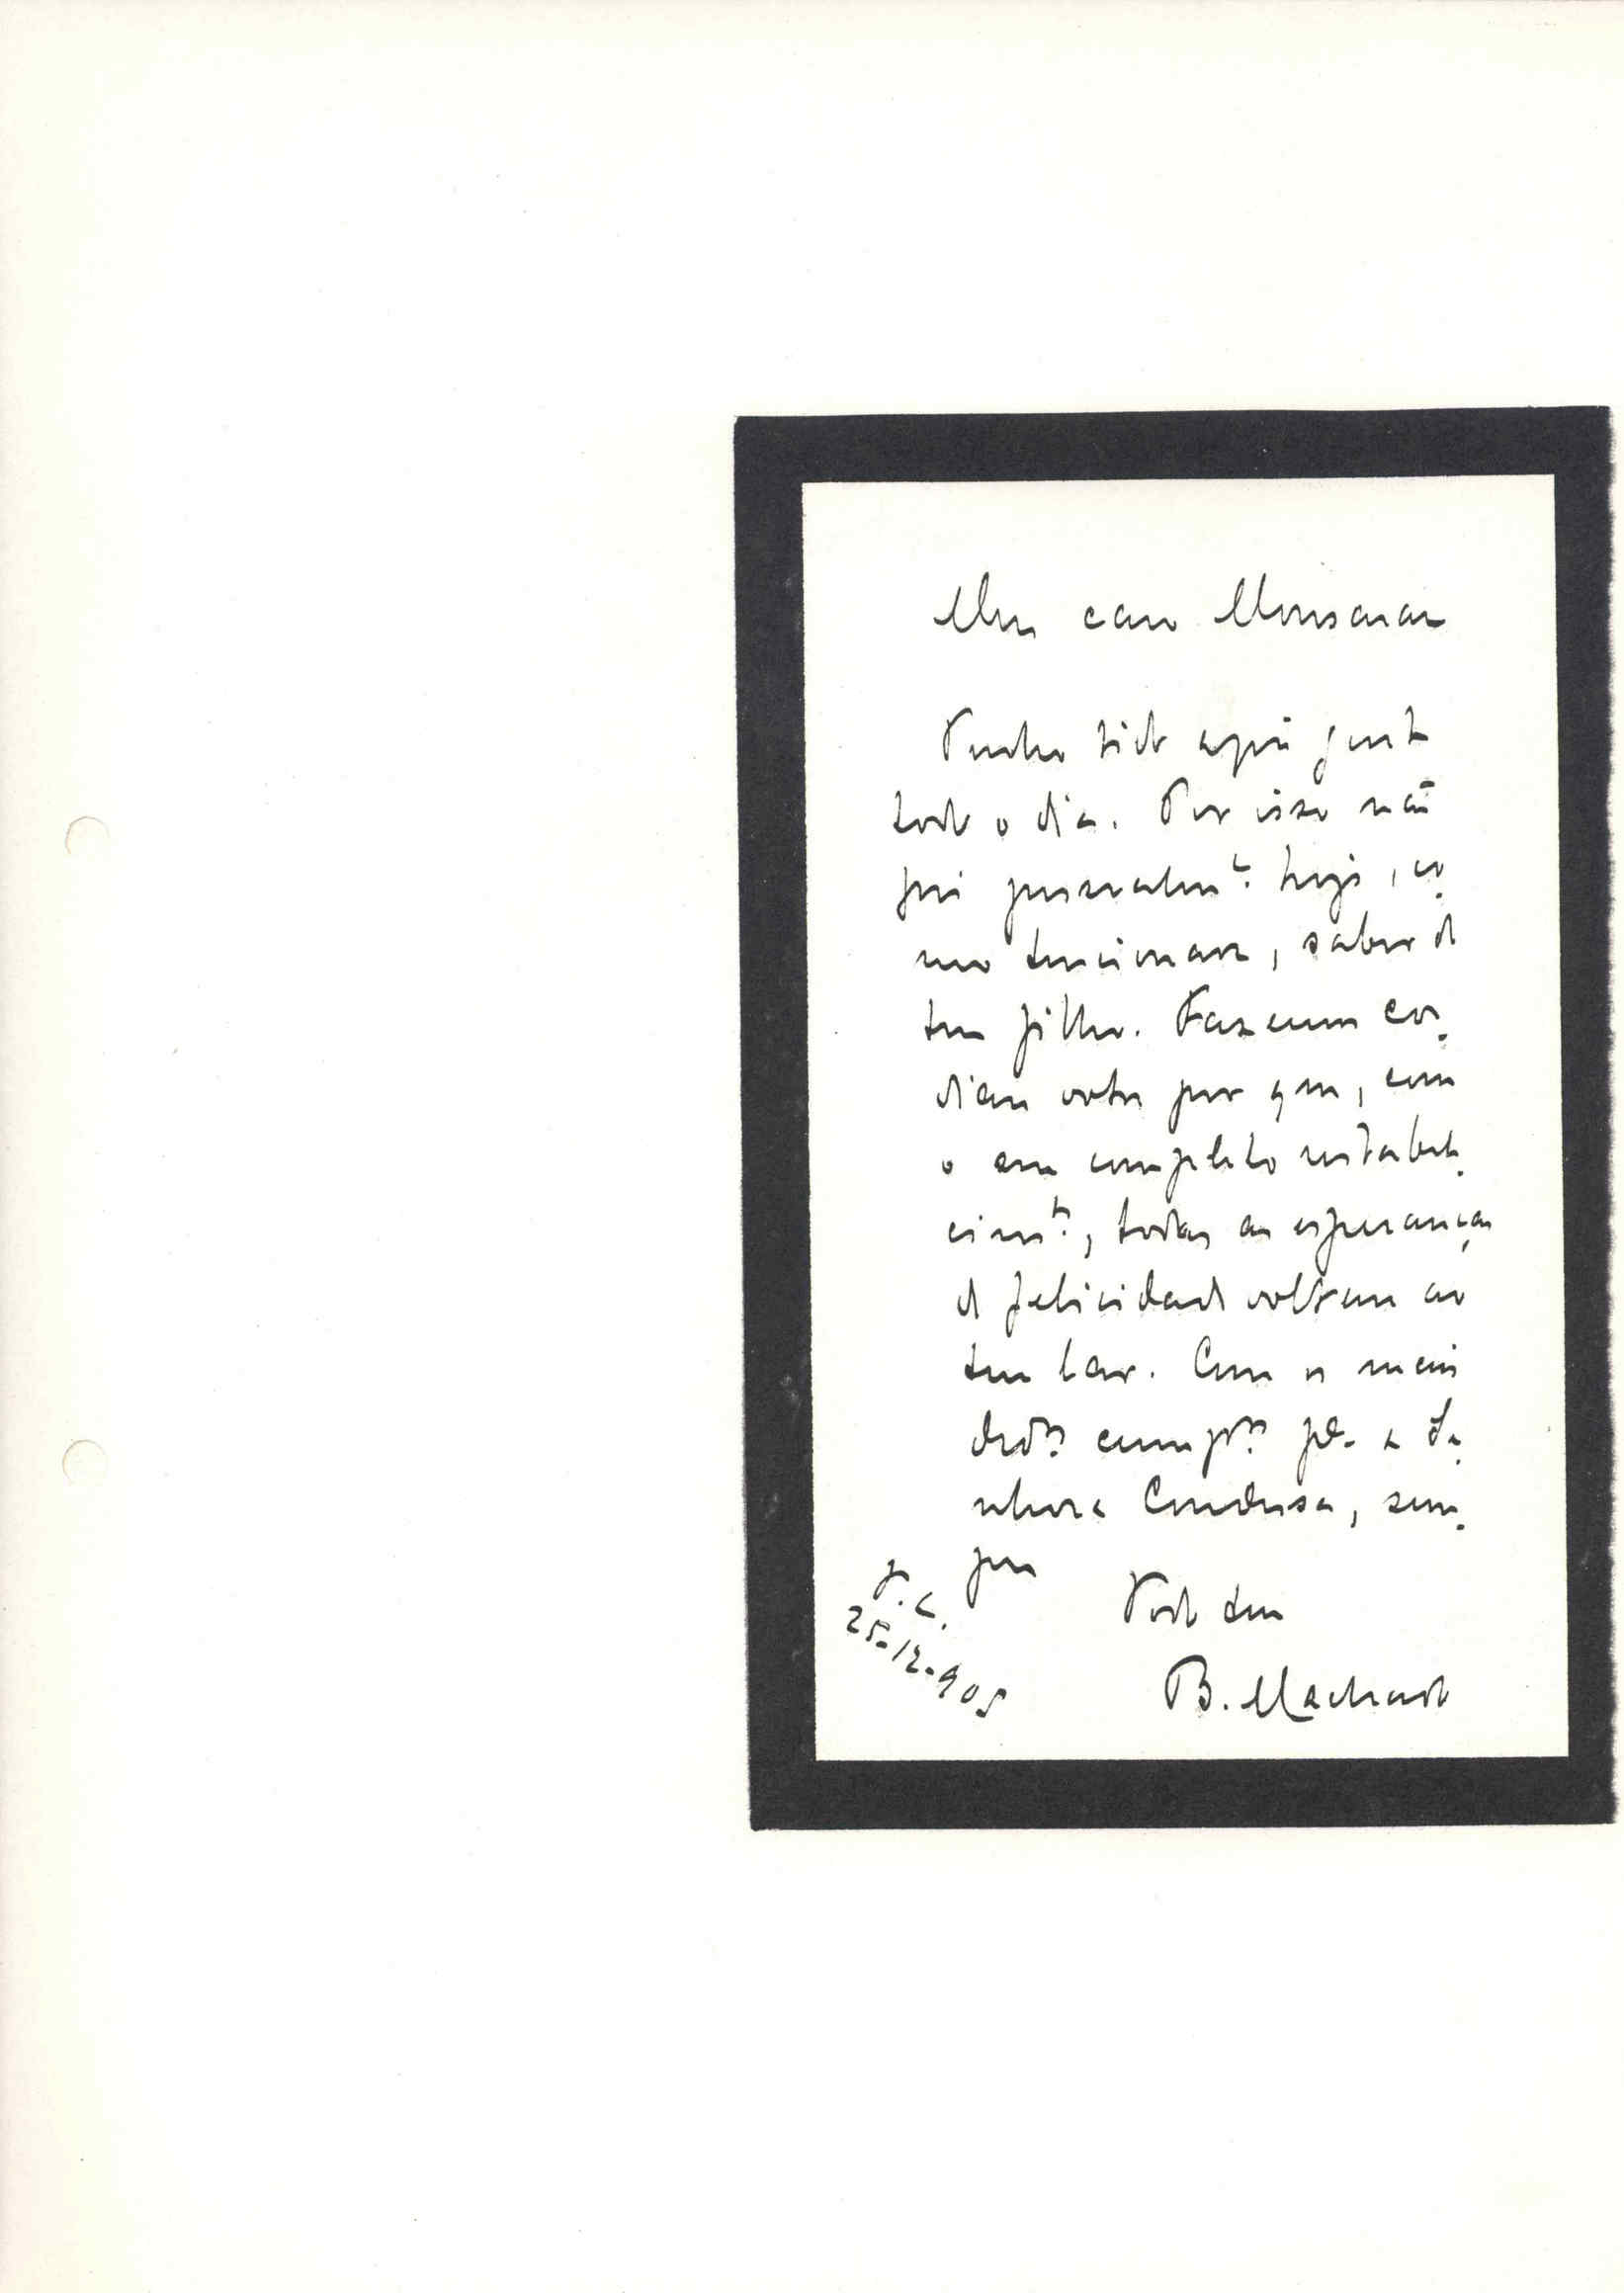 Meu caro Monsaraz
Tenho tido aqui gente
todo o dia. Por isso não
fui pessoalm.te hoje, co-
mo tencionava, saber de
teu filho. Fazemos cor-
diaes votos por que, com
o seu completo restabele-
cim.to, todas as esperanças
de felicidade voltem ao
teu lar. Com os meus
ded.os cump.tos p.a a Se-
nhora Condessa, sem-
pre
Todo teu
B. Machado
25-12-905